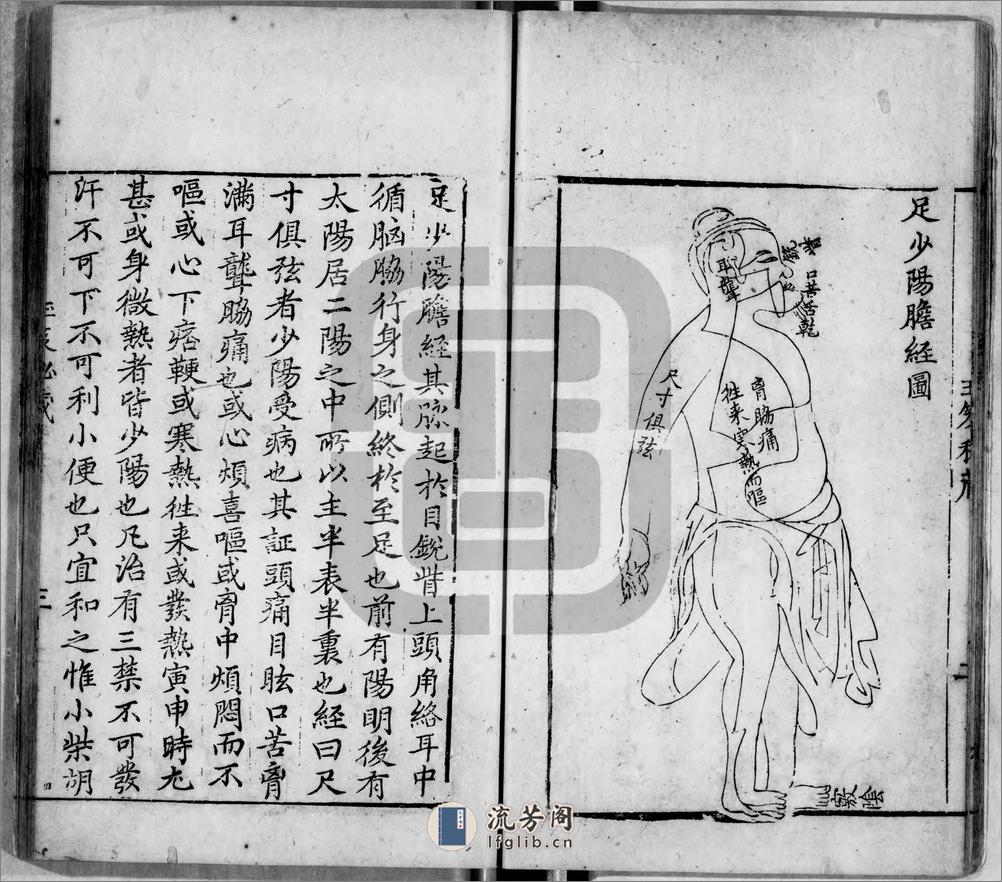 足少陽膽經圖
耳聾
口苦舌乾
尺寸俱弦
脅脇痛
徃来寒熱而嘔
竅陰
足少陽膽經其脉起於目銳眥上頭角絡耳中
循脑脇行身之側終於至足也前有陽明後有
太陽居二陽之中所以主半表半裏也經曰尺
寸俱弦者少陽受病也其証頭痛目眩口苦脅
滿耳聾脇痛也或心煩喜嘔或脅中煩悶而不
嘔或心下痞鞕或寒熱徃来或發熱寅申時尤
甚或身微熱者皆少陽也凡治有三禁不可發
汗不可下不可利小便也只宜和之惟小柴胡
三
流芳阁
lfglib.cn